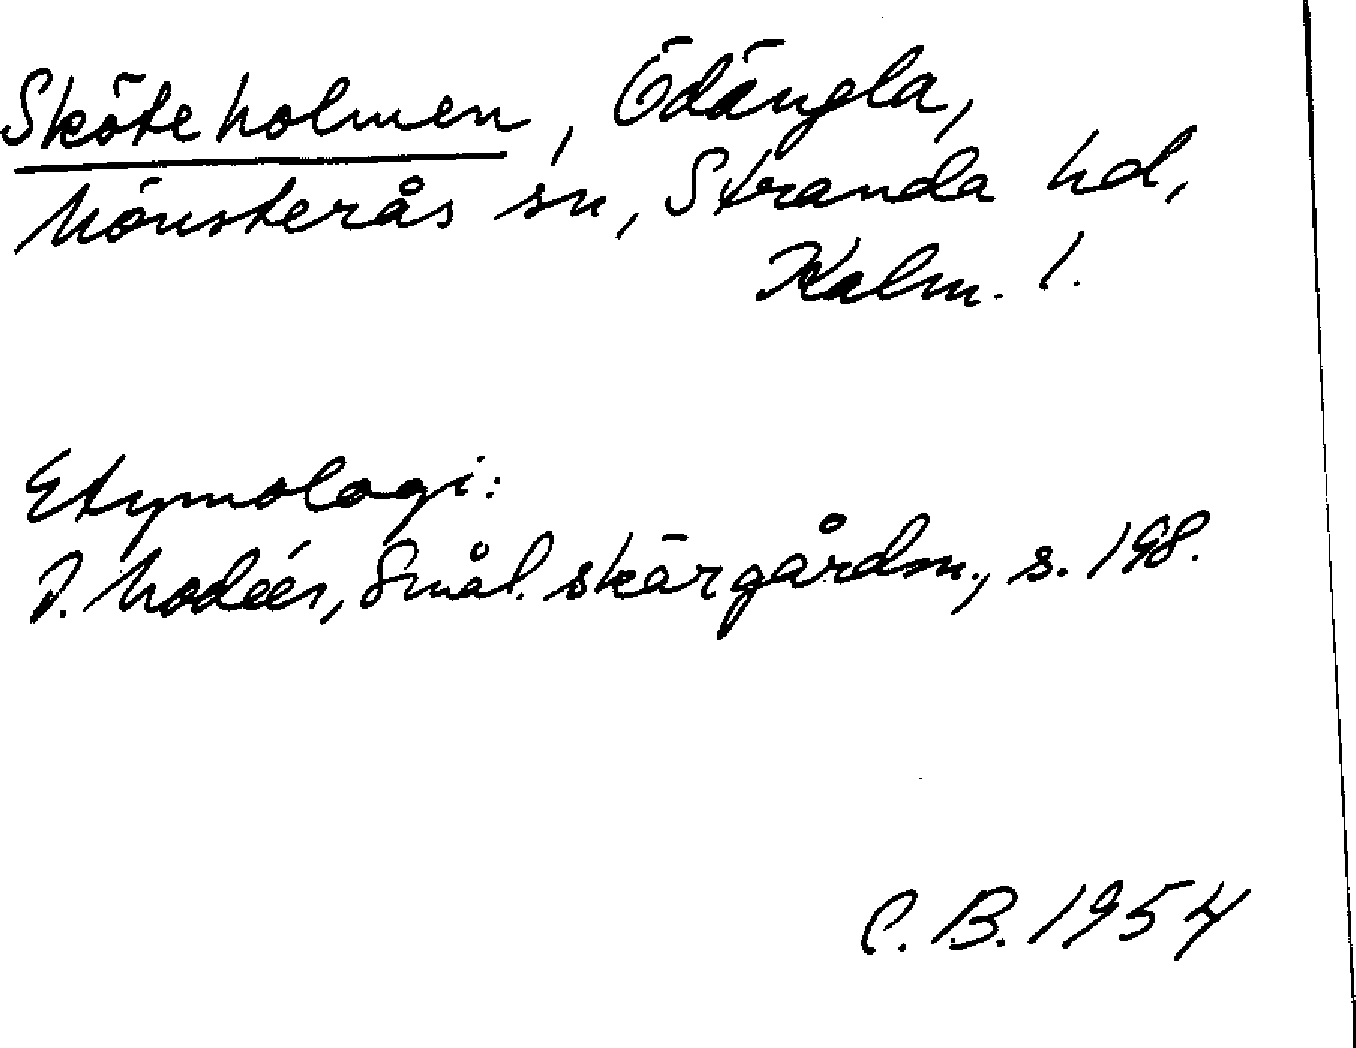 Sköteholmen, Ödängla,
Mönsterås sn, Stranda hd,
Kalm. l.
Etymologi:
I. Modéer, Smål. skärgårdsn., s. 198.
C. B. 1954